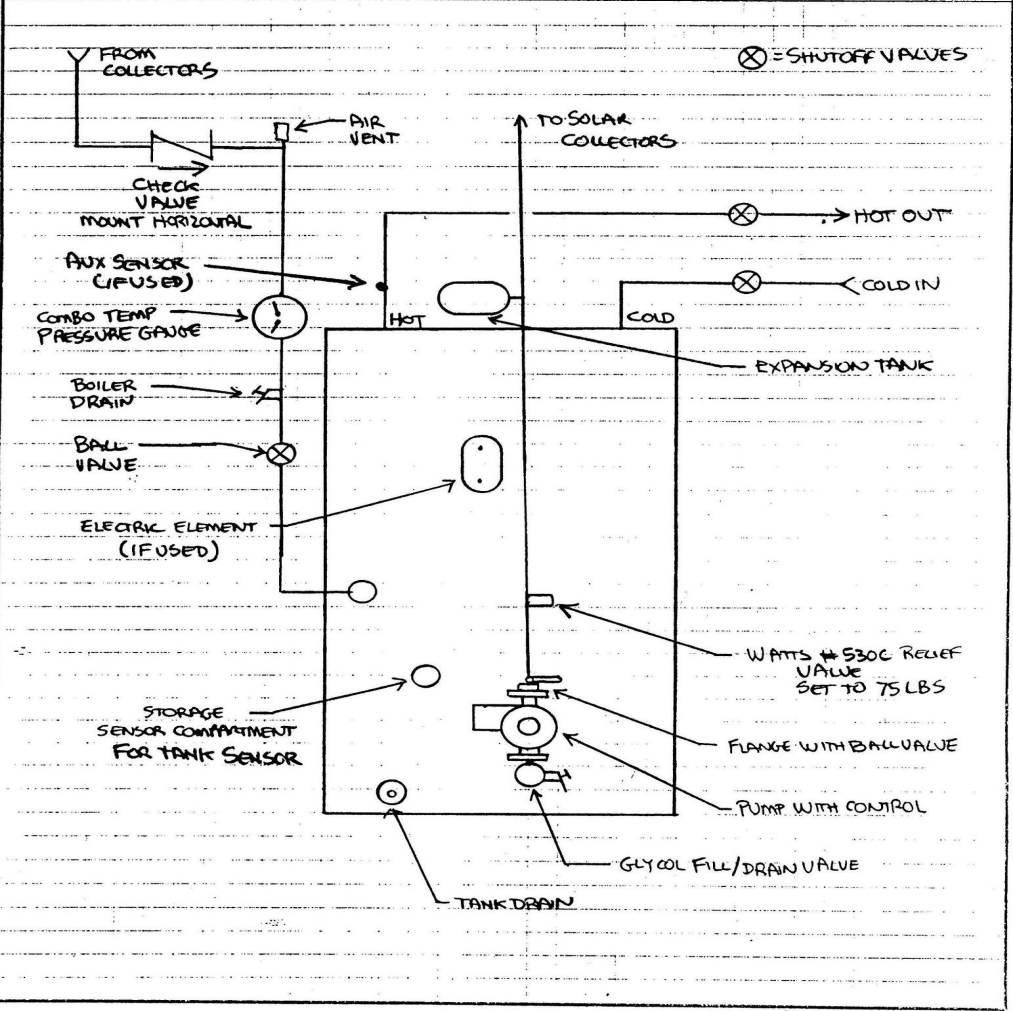 FROM
COLLECTORS
⊗ = SHUTOFF VALVES
AIR
VENT
TO SOLAR
COLLECTORS
CHECK
VALVE
MOUNT HORIZONTAL
HOT OUT
AUX SENSOR
(IF USED)
COLD IN
COMBO TEMP
PRESSURE GAUGE
HOT
COLD
EXPANSION TANK
BOILER
DRAIN
BALL
VALVE
ELECTRIC ELEMENT
(IF USED)
WATTS #530C RELIEF
VALVE
SET TO 75 LBS
STORAGE
SENSOR COMPARTMENT
FOR TANK SENSOR
FLANGE WITH BALL VALVE
PUMP WITH CONTROL
GLYCOL FILL/DRAIN VALVE
TANK DRAIN